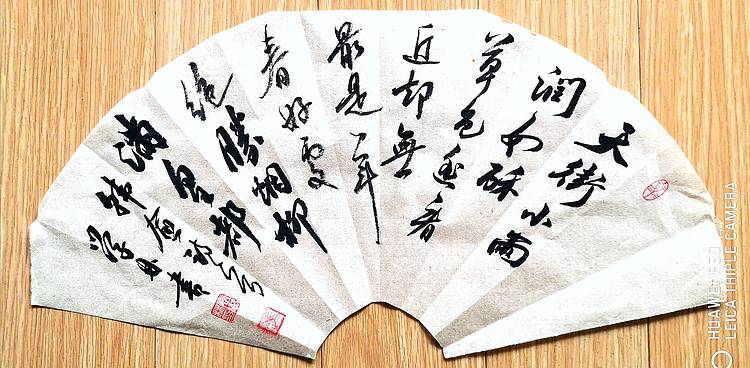 天街小雨
潤如酥
草色遥看
近却無
最是一年
春好处
绝勝烟柳
满皇都
韩愈诗
書
HUAWEI P30
LEICA TRIPLE CAMERA